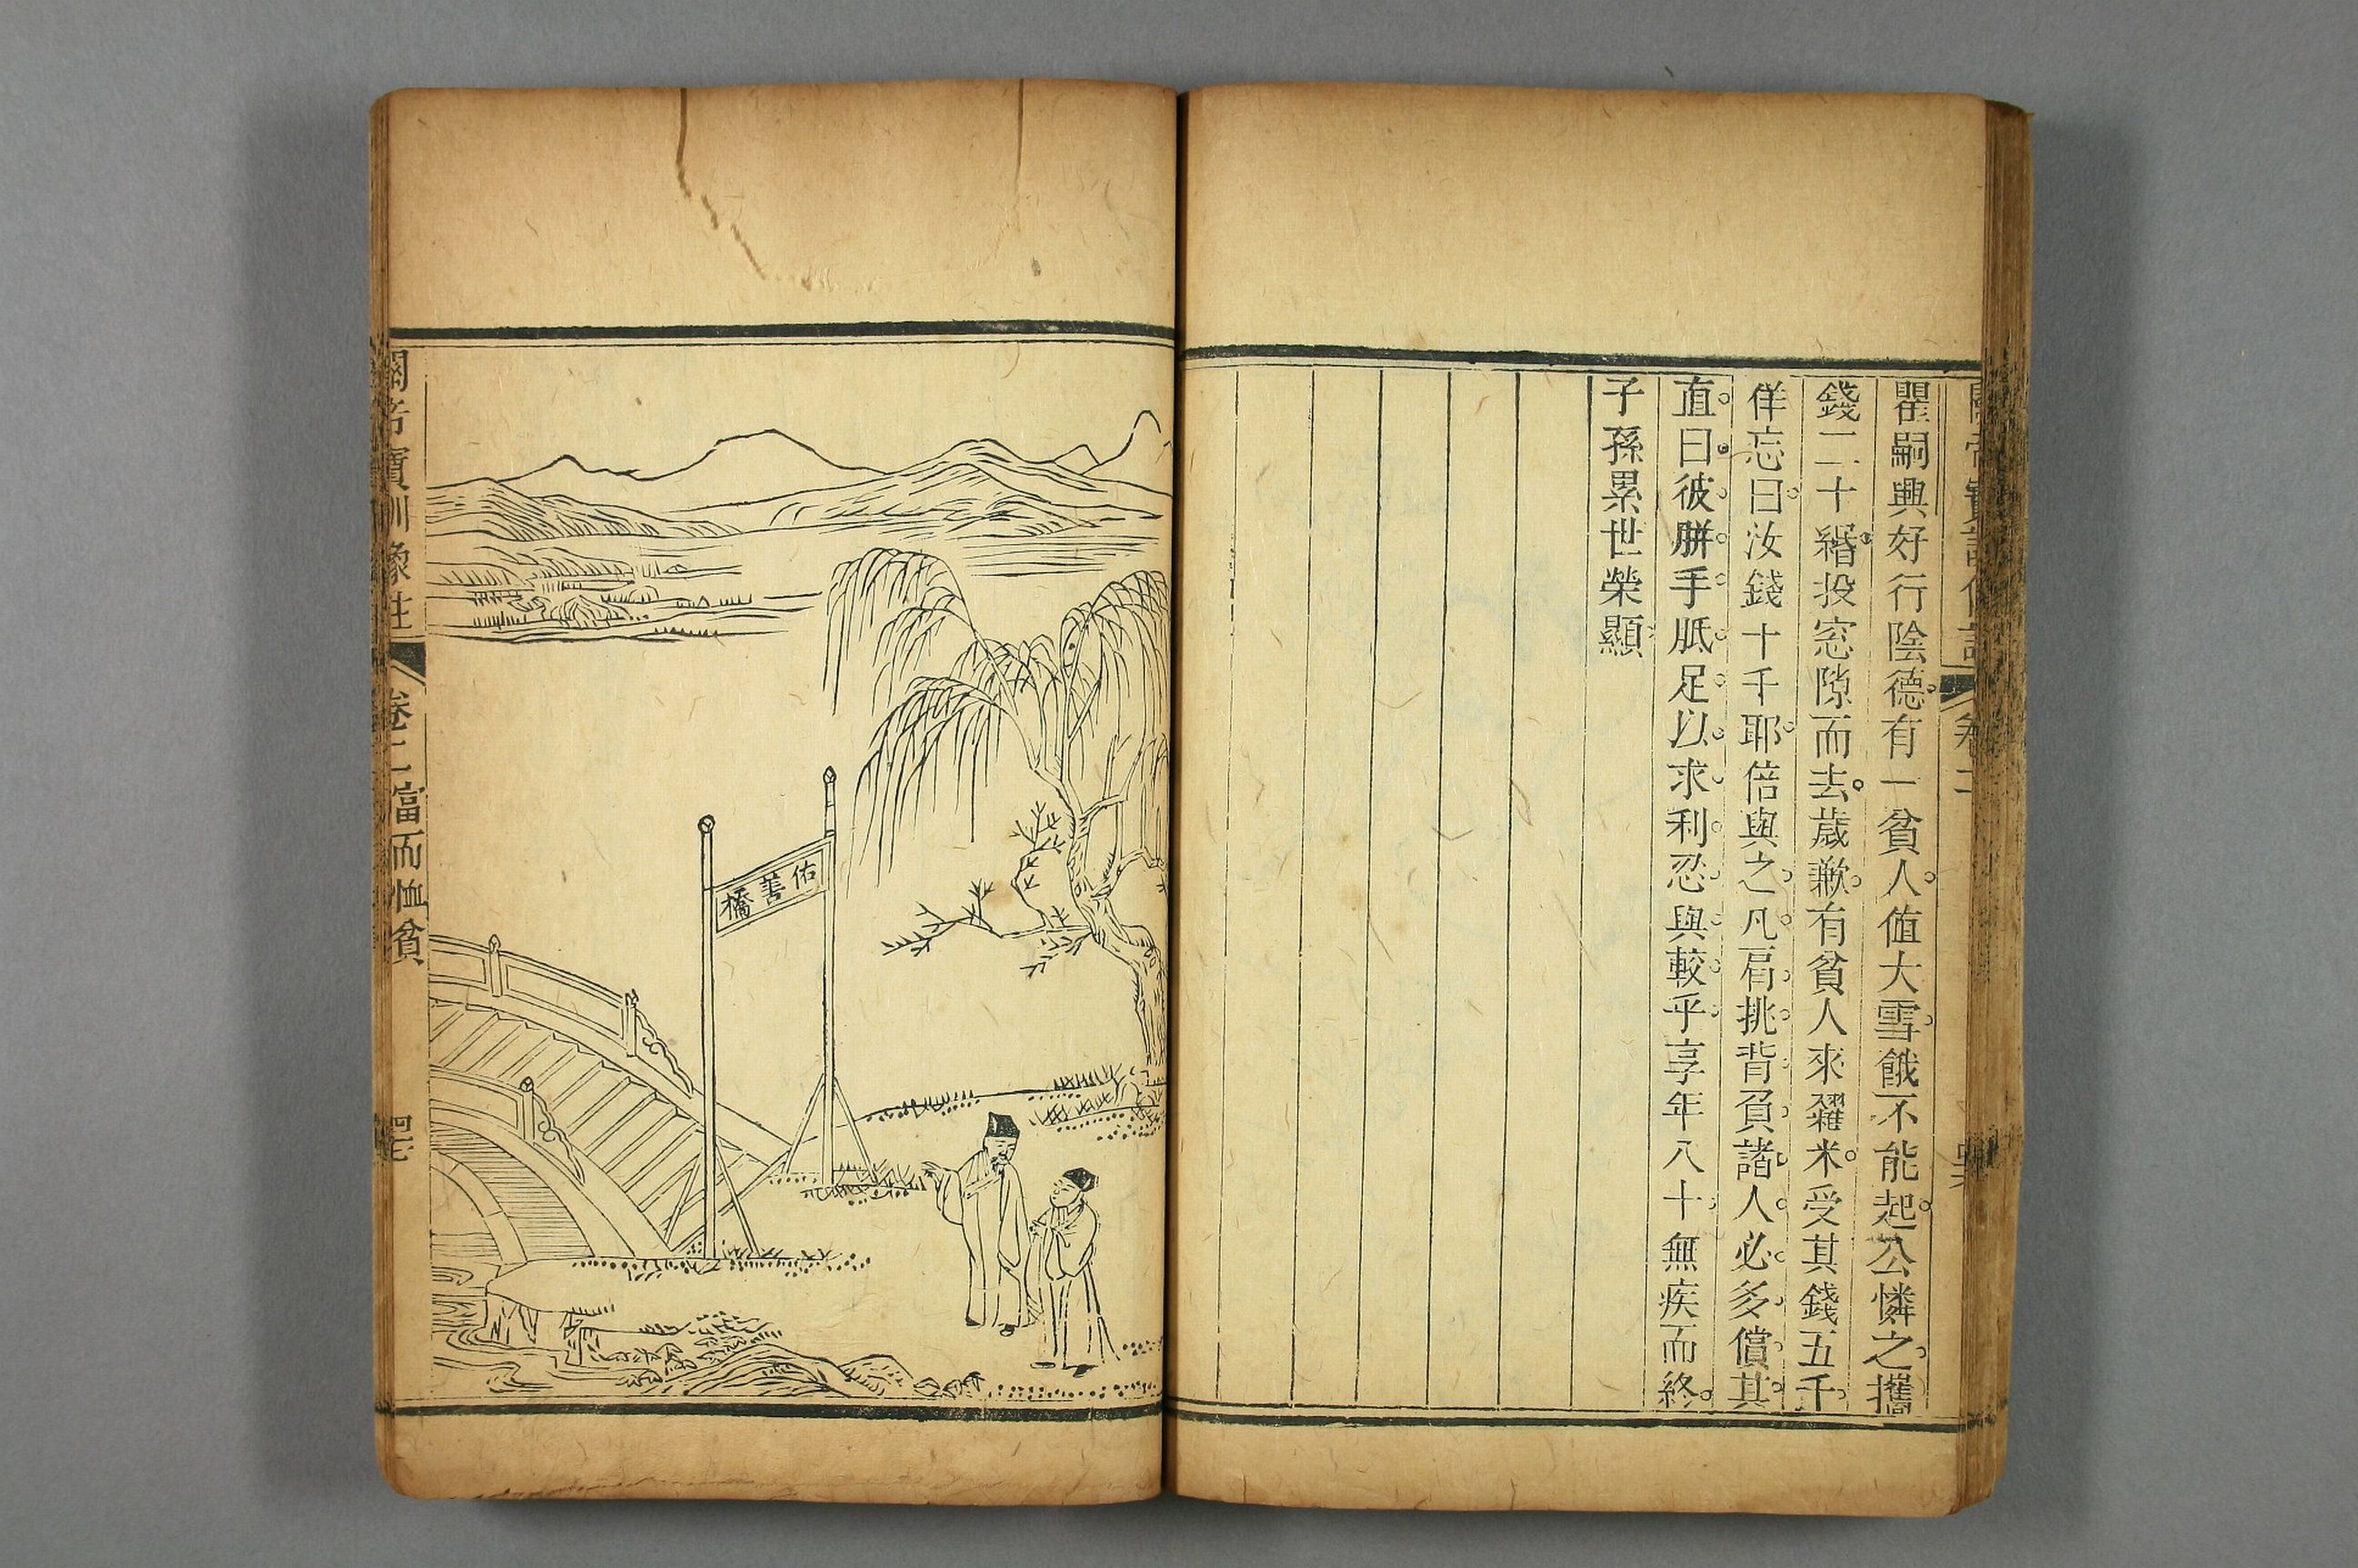 瞿嗣興好行陰德有一貧人值大雪餓不能起公憐之攜
錢二十緡投窓隙而去歲歉有貧人來糴米受其錢五千
佯忘曰汝錢十千耶倍與之凡肩挑背負諸人必多償其
直曰彼胼手胝足以求利忍與較乎享年八十無疾而終
子孫累世榮顯
佑善橋
關帝寶訓像註 卷二 富而恤貧